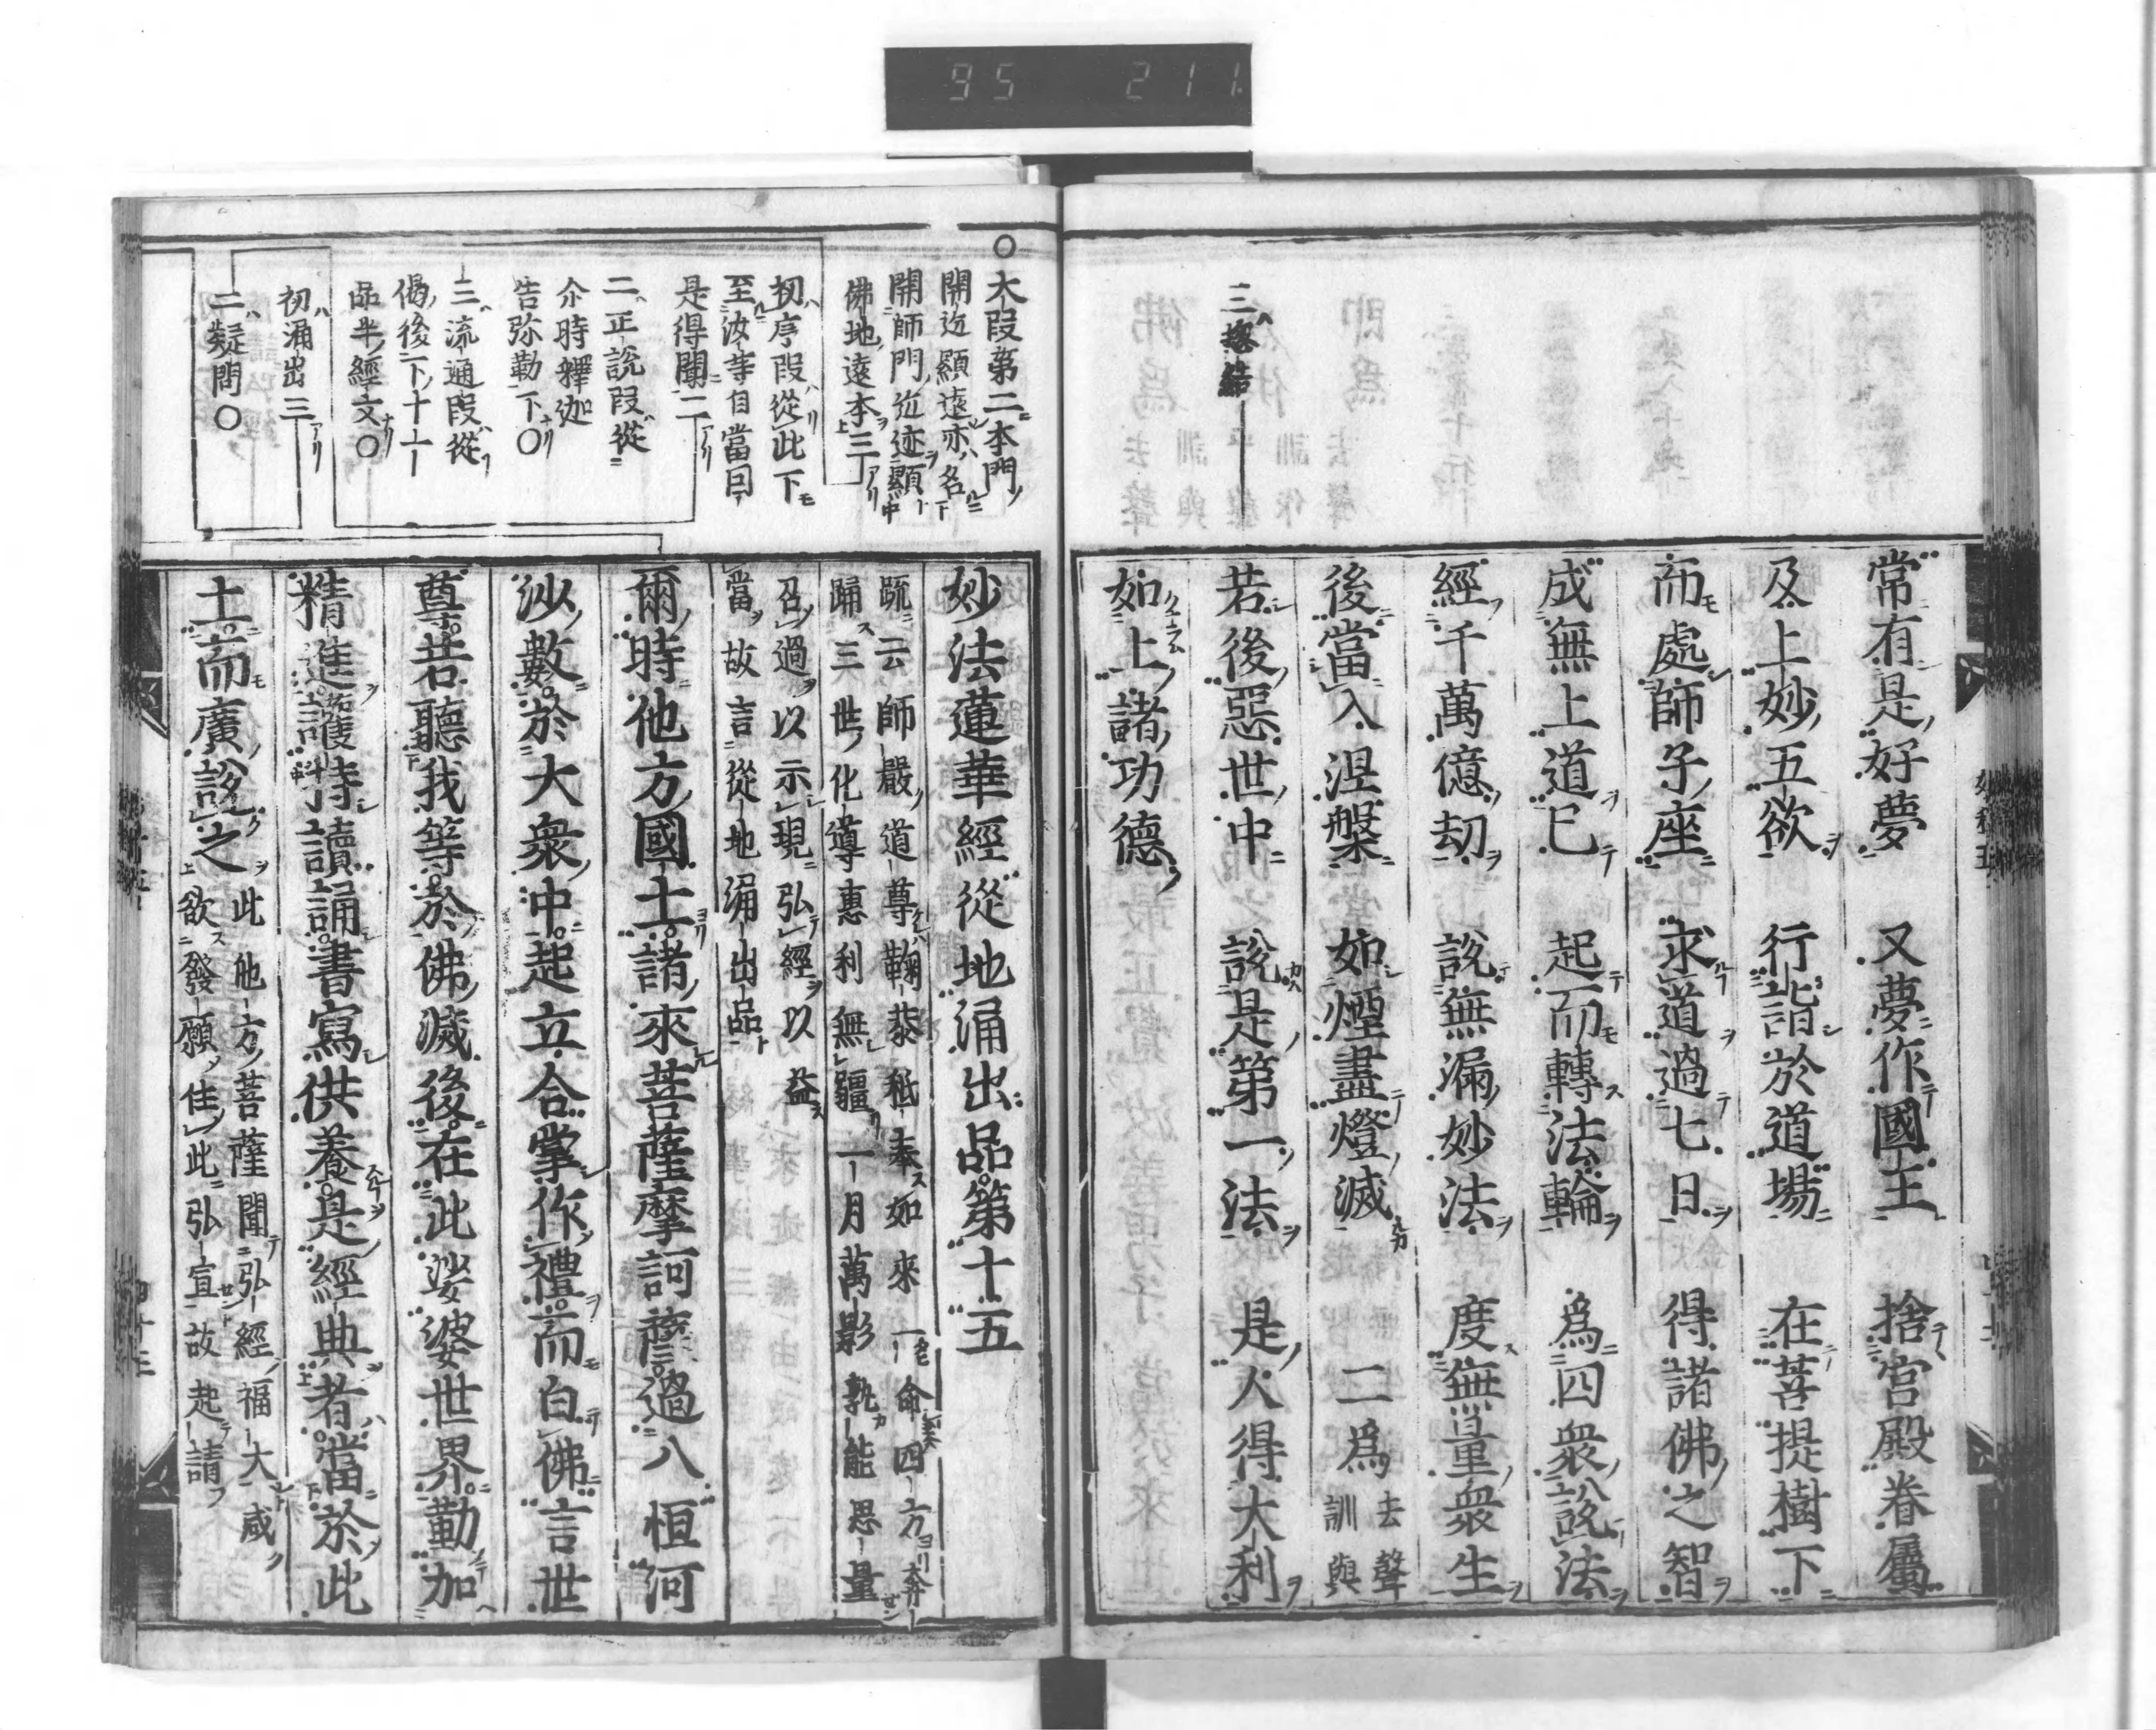 95 211
三ハ總結
常有是好夢 又夢作國王 捨宮殿眷屬
及上妙五欲 行詣於道場 在菩提樹下
而處師子座 求道過七日 得諸佛之智
成無上道已 起而轉法輪 爲四衆說法
經千萬億劫 說無漏妙法 度無量衆生
後當入涅槃 如煙盡燈滅 二爲去聲訓與
若後惡世中 說是第一法 是人得大利
如上諸功德
〇大段第二本門
開近顯遠亦各
開師門近迹顯
佛地遠本三
初序段從此下
至汝等自當因
是得聞二
二正説段從
尒時釋迦
告弥勒下〇
三流通段從
偈後下十一
品半經文〇
初涌出三
二疑問〇
妙法蓮華經從地涌出品第十五
疏云師嚴道尊鞠恭祗奉如來一命四方奔
踊三世化導惠利無疆一月萬影孰能思量
召過以示現弘經以益
當故言從地涌出品
爾時他方國土諸來菩薩摩訶薩過八恒河
沙數於大衆中起立合掌作禮而白佛言世
尊若聽我等於佛滅後在此娑婆世界勤加
精進護持讀誦書寫供養是經典者當於此
土而廣說之 此他方菩薩聞弘經福大咸
欲發願住此弘宣故起請